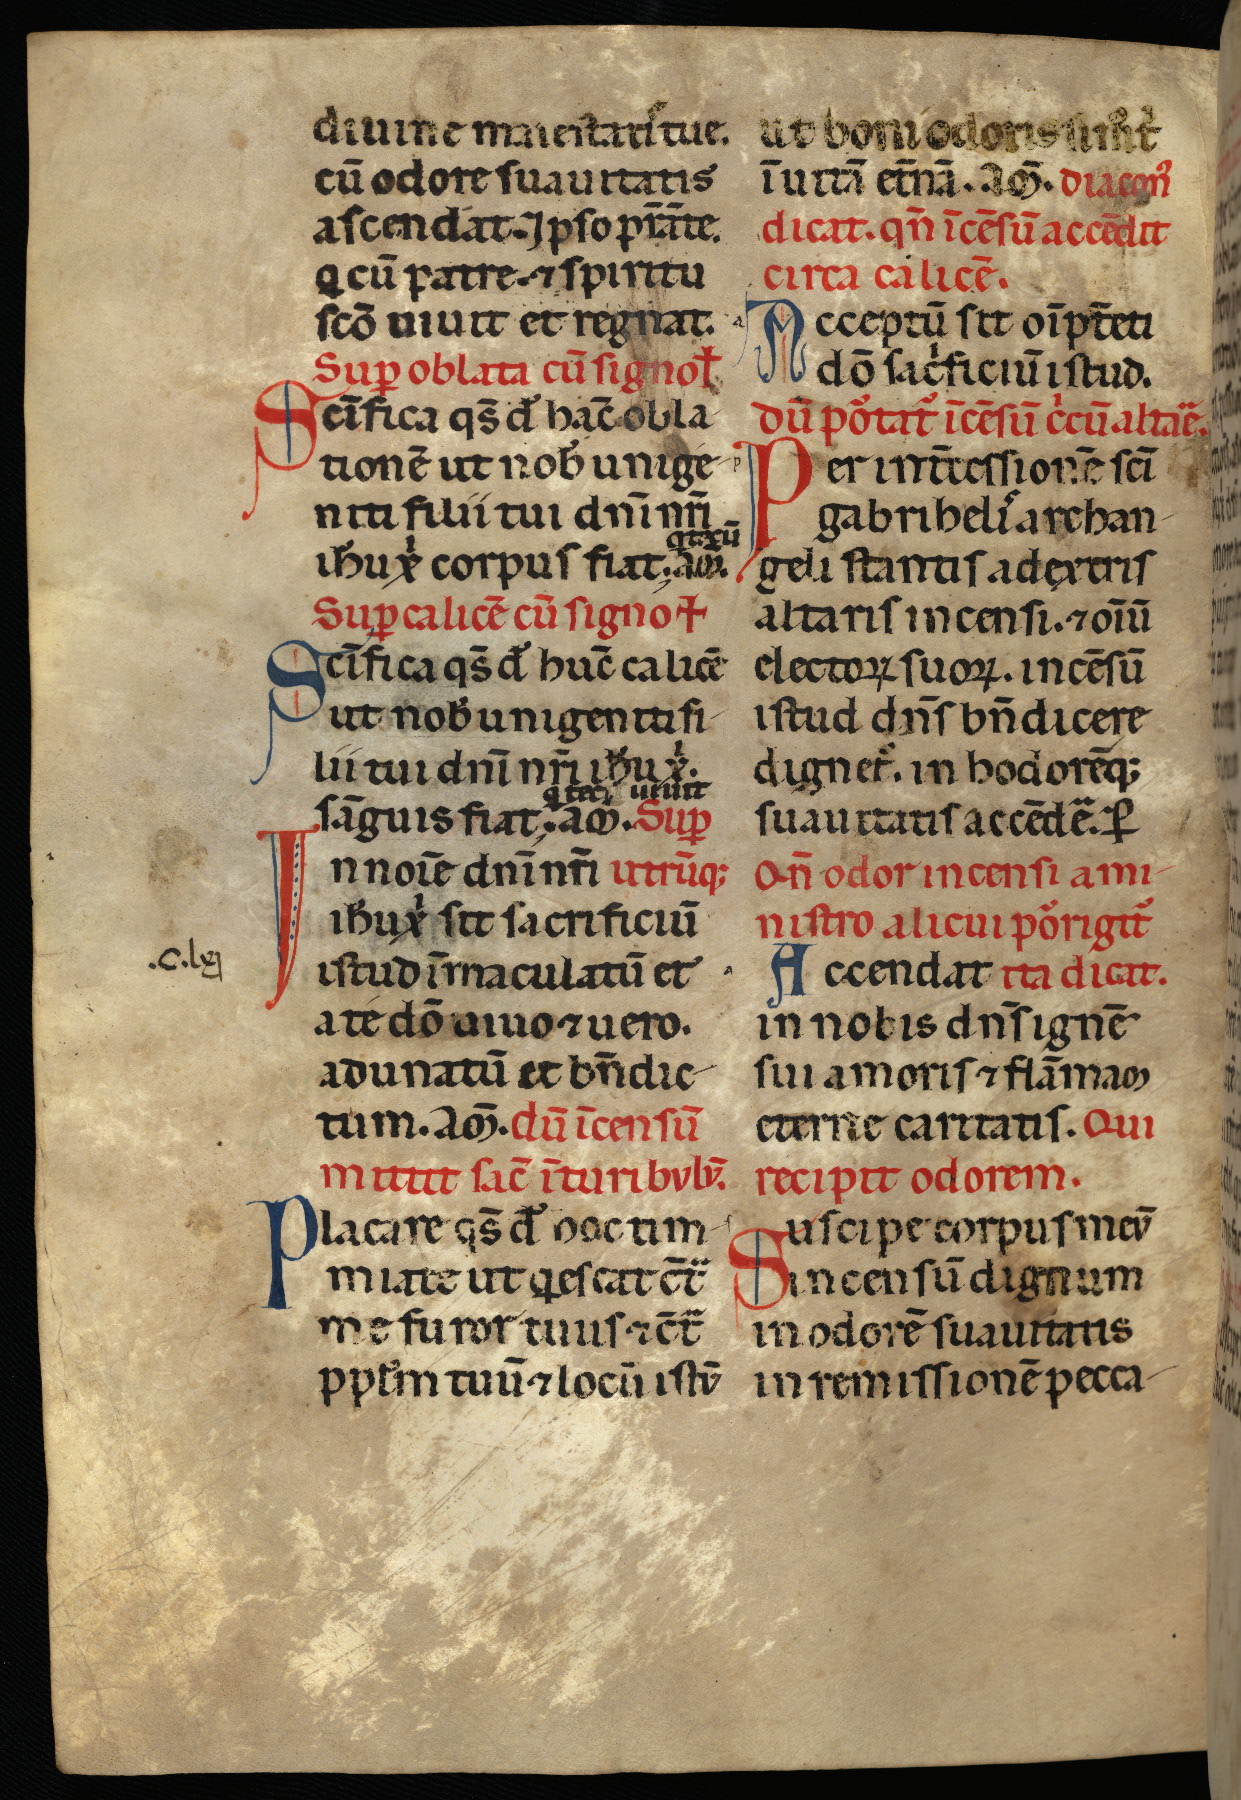 diuine maiestatis tue.
cū odore suauitatis
ascendat. Ipso p̄stāte.
q cū patre. ⁊ spiritu
scō uiuit et regnat.
Sup oblata cū signo ł
Scīfica qs̄ d̄s hāc obla-
tionē ut nob̄ unige-
niti filii tui dn̄i nr̄i
ih̄u xi corpus fiat. am̄.
Sup calicē cū signo ✝
Scīfica qs̄ d̄s hūc calicē
ut nob̄ unigeniti fi-
lii tui dn̄i nr̄i ih̄u xi.
sāguis fiat. am̄. Sup
In noīe dn̄i nr̄i utrūq;
ih̄u xi sit sacrificiū
istud īmaculatū et
.c.lxj
a te dō uiuo ⁊ uero.
adunatū et bn̄dic-
tum. am̄. dū īcensū
mittit sac̄ ī turibulū.
Placare qs̄ d̄s hoc tim-
miate ut q̄escat c̄tra
me furor tuus ⁊ c̄tra
ppłm tuū ⁊ locū istū
ut boni odoris simus t
ī uitā et̄nā. am̄. diacon
dicat. qn̄ īcēsū accēdit
circa calicē.
Acceptū sit oīpt̄eti
dō sacficiū istud.
dū portat īcēsū c̄cū altare.
Per int̄cessionē scī
gabrihelis archan-
geli stantis a dextris
altaris incensi. ⁊ oīū
electoꝝ suoꝝ. incēsū
istud dn̄s bn̄dicere
dignet. in hodorēq;
suauitatis accēdē. P
Qn̄ odor incensi a mi-
nistro alicui porrigit
Accendat ita dicat.
in nobis dn̄s ignē
sui amoris ⁊ flāmam
eterne caritatis. Qui
recipit odorem.
Suscipe corpus meū
incensū dignum
in odorē suauitatis
in remissionē pecca-